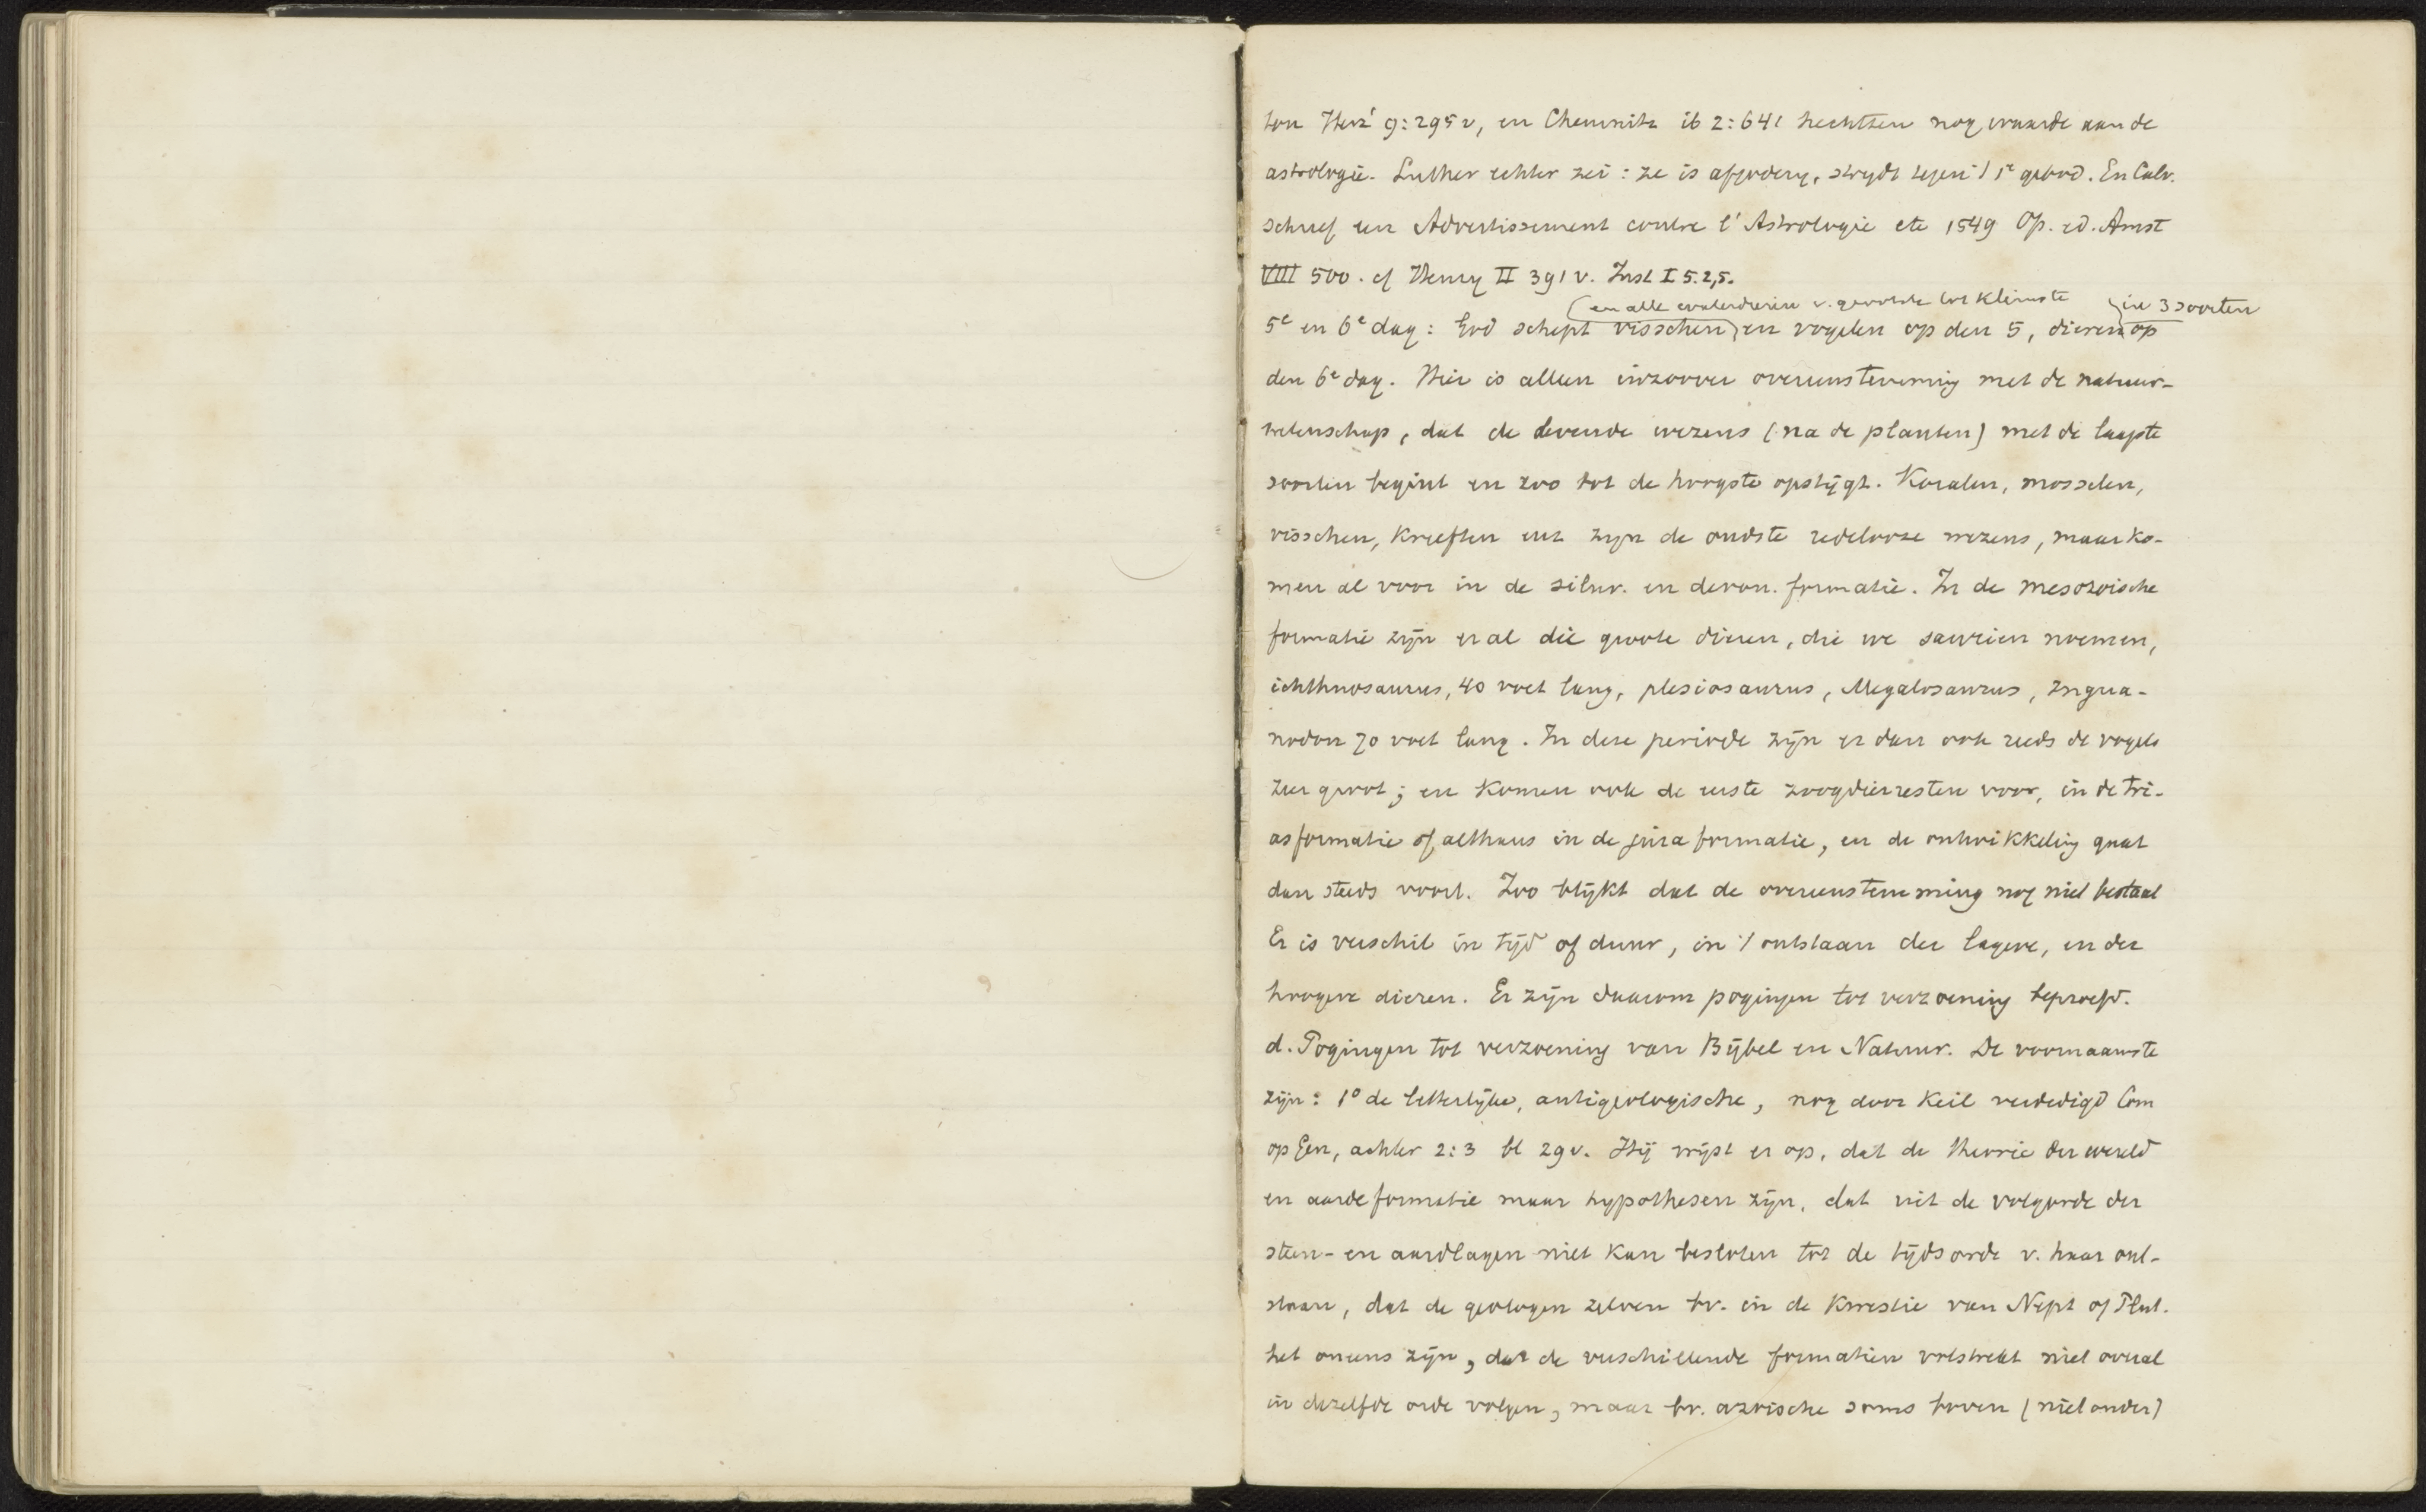 ton Herz² 9:295v, en Chemnitz ib 2:641 hechtten nog waarde aan de
astrologie. Luther echter zei: ze is afgodery, strydt tegen 't 1e gebod. En Calv.
schreef een Advertissement contre l'Astrologie etc 1549 Op. ed. Amst
VIII 500. cf Henry II 391v. Inst I 5.2,5.
(en alle waterdieren v. grootste tot kleinste
in 3 soorten
5e en 6e dag: God schept visschen) en vogelen op den 5, dieren op
den 6e dag. Hier is alleen inzoover overeenstemming met de natuur-
wetenschap, dat de levende wezens (na de planten) met de laagste
soorten begint en zoo tot de hoogste opstijgt. Koralen, mosselen,
visschen, Kreeften enz zyn de oudste redelooze wezens, maar ko-
men al voor in de silur. en devon. formatie. In de mesozoische
formatie zijn er al die groote dieren, die we saurien noemen,
ichthnosaurus, 40 voet lang, plesiosaurus, Megalosaurus, Ingua-
nodon 70 voet lang. In deze periode zijn er dan ook reeds de vogels
zeer groot; en komen ook de eerste zoogdierresten voor, in de tri-
asformatie of althans in de jura formatie, en de ontwikkeling gaat
dan steeds voort. Zoo blijkt dat de overeenstemming nog niet bestaat
Er is verschil in tijd of duur, in 't ontstaan der lagere, en der
hoogere dieren. Er zijn daarom pogingen tot verzoening beproefd.
d. Pogingen tot verzoening van Bijbel en Natuur. De voornaamste
zijn: 1° de letterlijke, antigeologische, nog door Keil verdedigd Com
op Gen, achter 2:3 bl 29v. Hij wijst er op, dat de theorie der wereld
en aardeformatie maar hypothesen zijn, dat uit de volgorde der
steen- en aardlagen niet kan besloten tot de tijdsorde v. haar ont-
staan, dat de geologen zelven bv. in de Kwestie van Nept of Plut.
het oneens zijn, dat de verschillende formatien volstrekt niet overal
in dezelfde orde volgen, maar bv. azoische soms boven (niet onder)